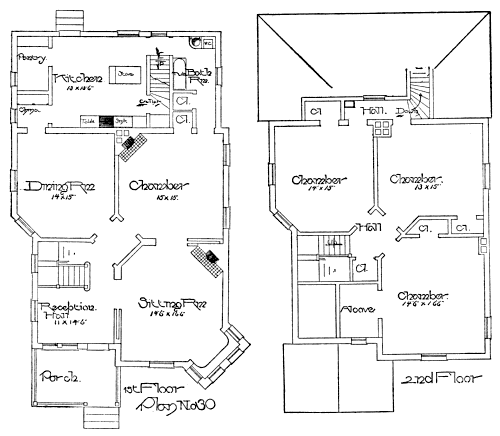 Pantry
Kitchen
13 x 15'6"
Stove
UP
Bath
Rm.
W.C.
Cl.
Cl.
Table
Sink
Dining Rm
14 x 15'
Chamber
15 x 15'
Reception
Hall
11 x 14'6"
Sitting Rm
14'6 x 16'6"
Porch.
1st Floor
Plan No 30
Cl
Hall.
Down
Chamber
14' x 15'
Chamber.
13 x 15'
Hall
Cl.
Cl.
Cl.
Alcove
Chamber.
14'6 x 16'6"
2nd Floor